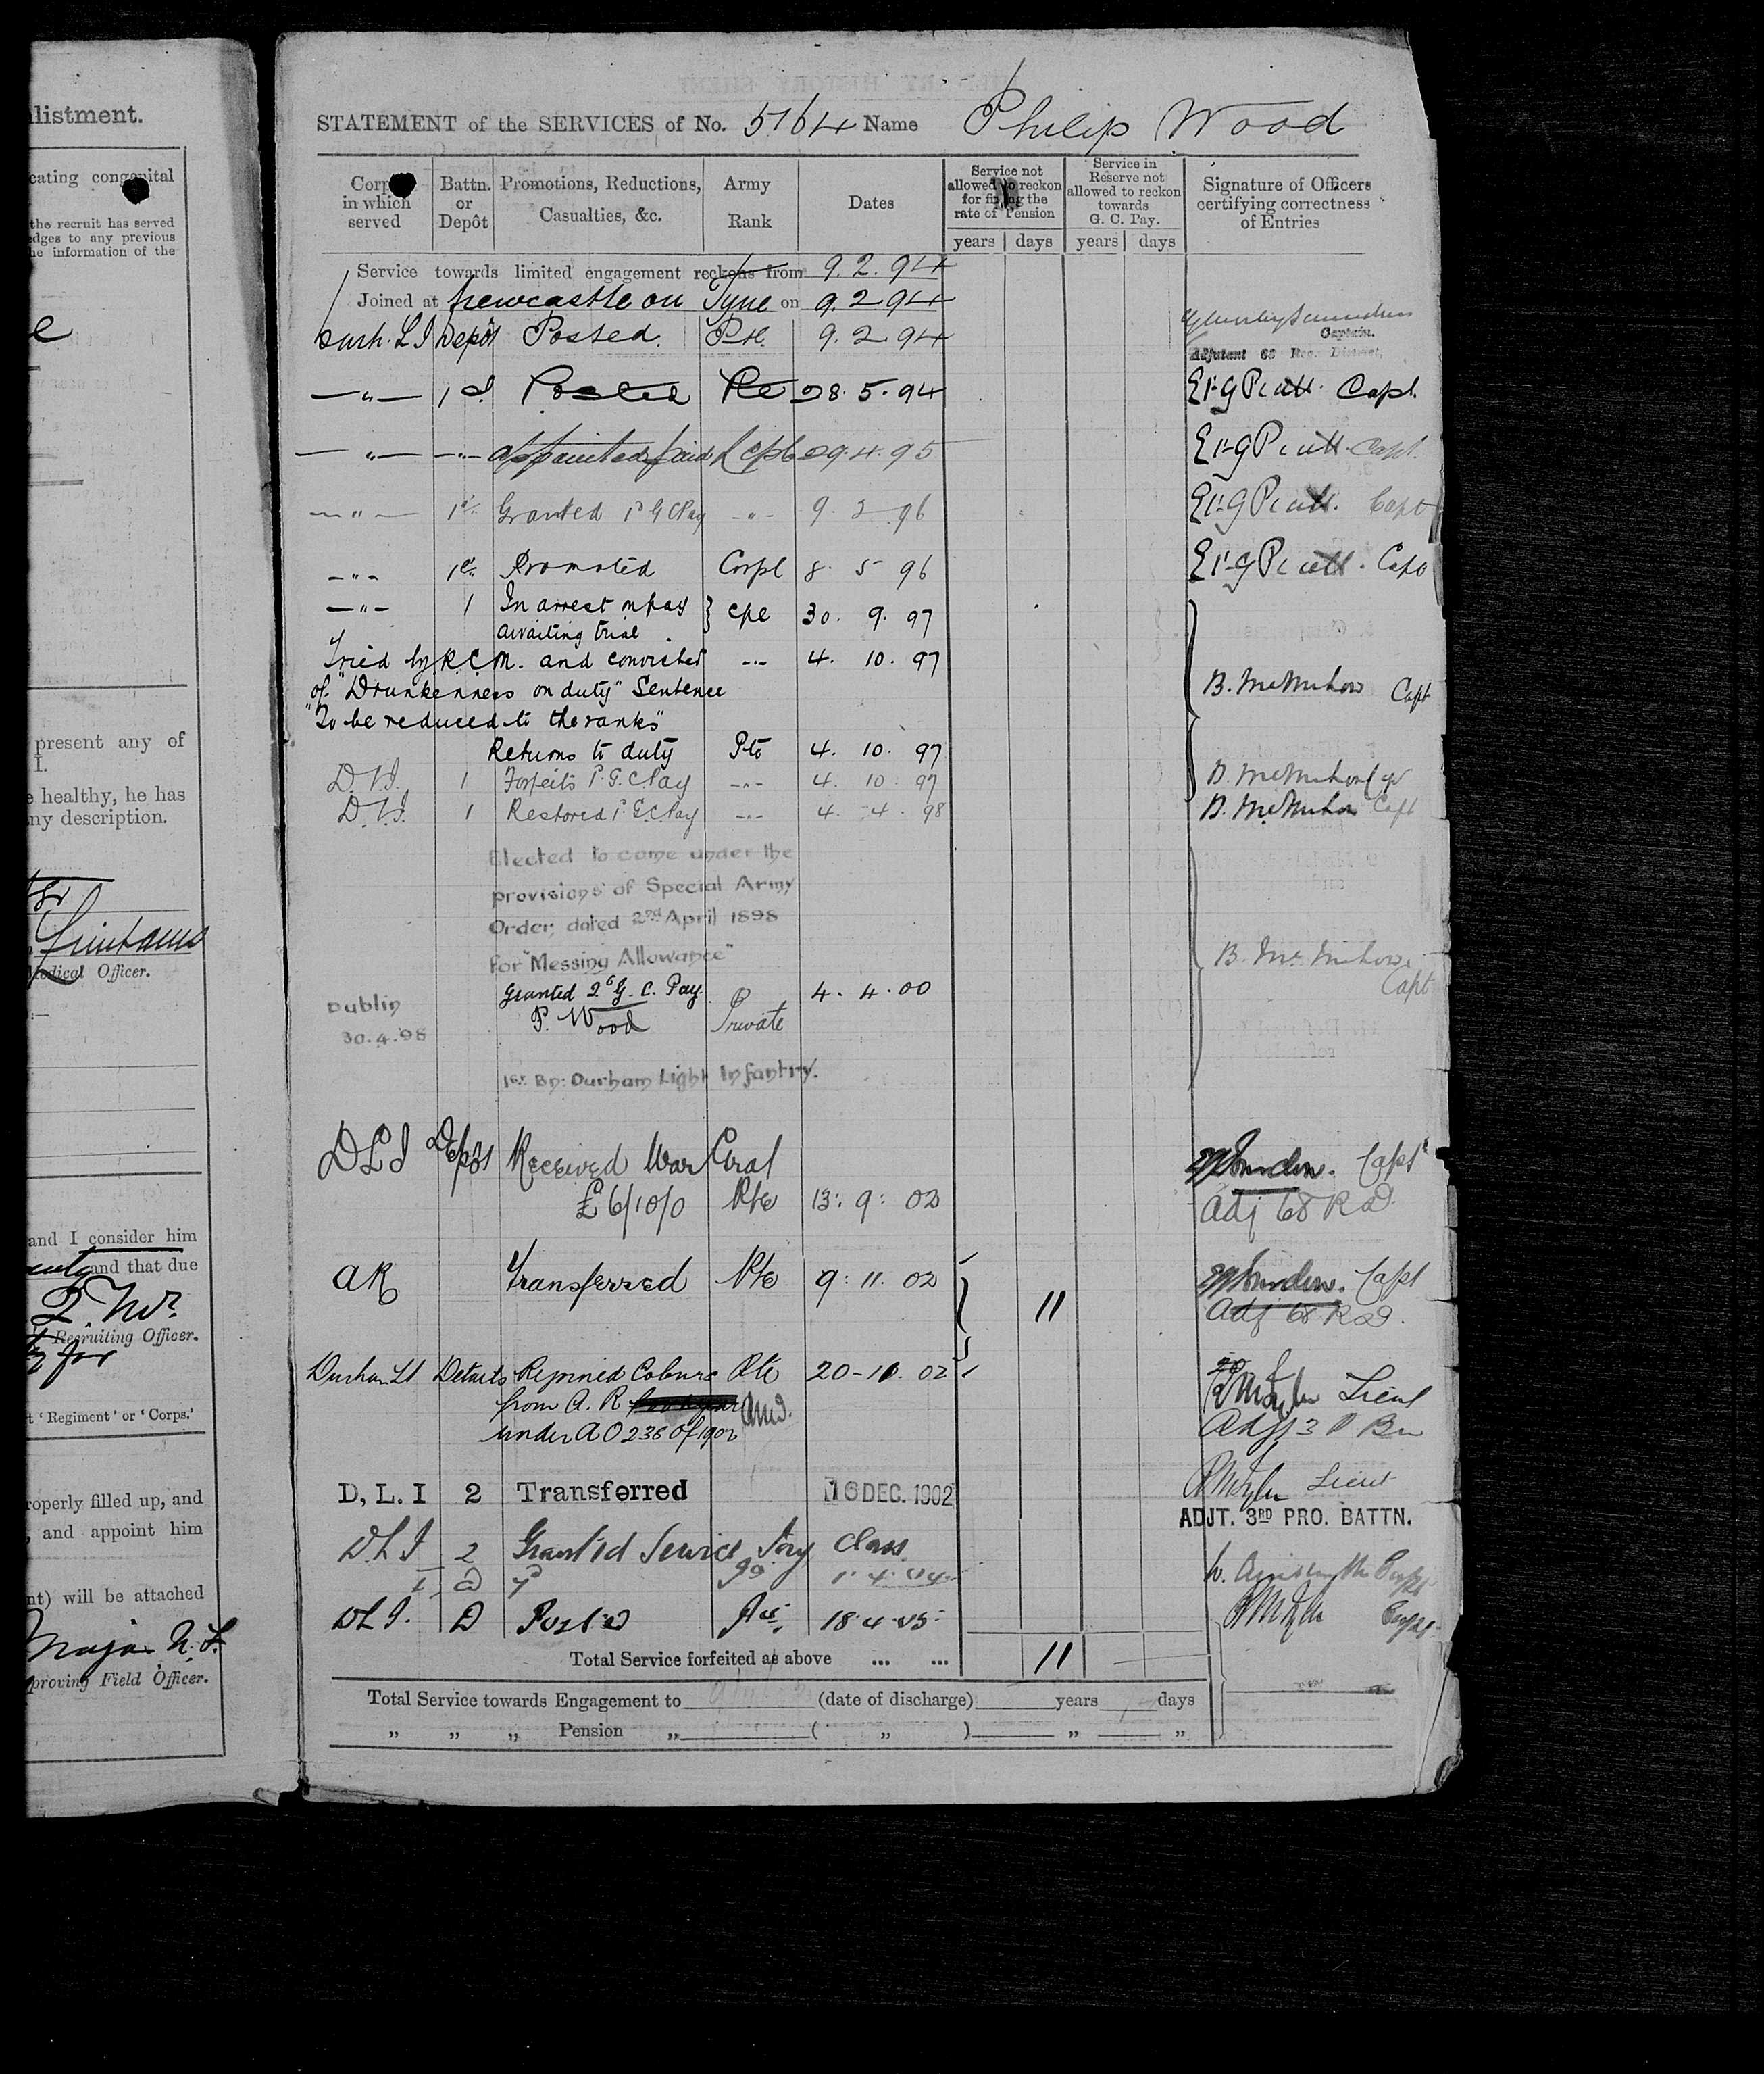 llistment.
cating congenital
the recruit has served
edges to any previous
he information of the
present any of
I.
e healthy, he has
ny description.
Medical Officer.
and I consider him
and that due
Recruiting Officer.
for
t 'Regiment' or 'Corps.'
roperly filled up, and
, and appoint him
nt) will be attached
Major
proving Field Officer.
STATEMENT of the SERVICES of No. 5164 Name Philip Wood
Corps in which served
Battn. or Depôt
Promotions, Reductions, Casualties, &c.
Army Rank
Dates
Service not allowed to reckon for fixing the rate of Pension
years days
Service in Reserve not allowed to reckon towards G. C. Pay.
years days
Signature of Officers certifying correctness of Entries
Service towards limited engagement reckons from 9. 2. 94
Joined at Newcastle on Tyne on 9. 2 94
Durh. L I Depôt Posted. Pte 9. 2 94
Captain.
Adjutant 68 Reg. District.
—"— 1st Posted Pte 28. 5. 94 Capt.
—"— —"— appointed paid L Cpl 29. 4. 95 Capt.
—"— 1st Granted 1d G C Pay —"— 9. 2 96 Capt
—"— 1st Promoted Corpl 8. 5 96 Capt
—"— 1 In arrest on pay
awaiting trial } Cpl 30. 9. 97
Tried by R.C.M. and convicted —"— 4. 10. 97
of "Drunkenness on duty" Sentence
"To be reduced to the ranks" B. McMahon Capt
Returns to duty Pte 4. 10. 97
D.L.I. 1 Forfeits 1d G.C Pay —"— 4. 10. 97 B. McMahon Capt
D.L.I. 1 Restored 1d G.C Pay —"— 4. 4. 98 B. McMahon Capt
Elected to come under the
provisions of Special Army
Order, dated 2nd April 1898
for "Messing Allowance" B. McMahon
Capt
Granted 2d G. C. Pay. 4. 4. 00
Dublin P. Wood Private
30.4.98
1st Bn: Durham Light Infantry.
DLI Depôt Received War Grat Capt
£6/10/0 Pte 13: 9: 02 Adj 68 R D.
AR Transferred Pte 9: 11. 02 Capt
11 Adj 68 R D.
Durham LI Details Rejoined Colours Pte 20-11. 02 Lieut
from A. R
under A O 236 of 1902 Adjt 3 P Bn
D, L. I 2 Transferred 16 DEC. 1902 Lieut
ADJT. 3RD PRO. BATTN.
D.L.I 2 Granted Service Pay Class
1. 4. 04
DLI. D Posted Pte. 18.4.05 Capt
Total Service forfeited as above ... ... 11
Total Service towards Engagement to (date of discharge) years days
" " " Pension " ( " ) " "